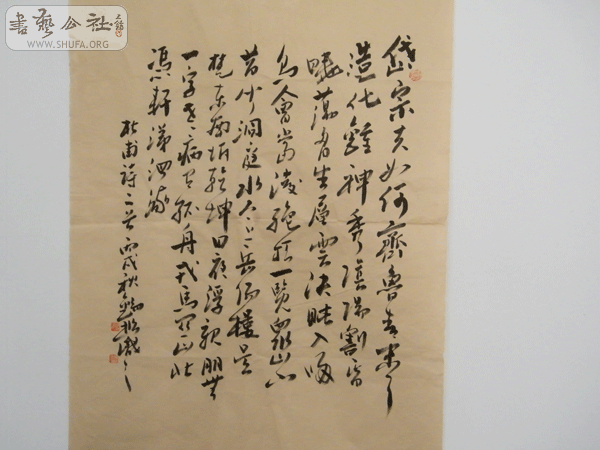 書藝公社
WWW.SHUFA.ORG
岱宗夫如何齊魯青未了
造化鍾神秀陰陽割昏
曉蕩胸生層雲決眥入歸
鳥會當凌絕頂一覽眾山小
昔聞洞庭水今上岳陽樓吳
楚東南坼乾坤日夜浮親朋無
一字老病有孤舟戎馬關山北
憑軒涕泗流
杜甫詩二首丙戌秋